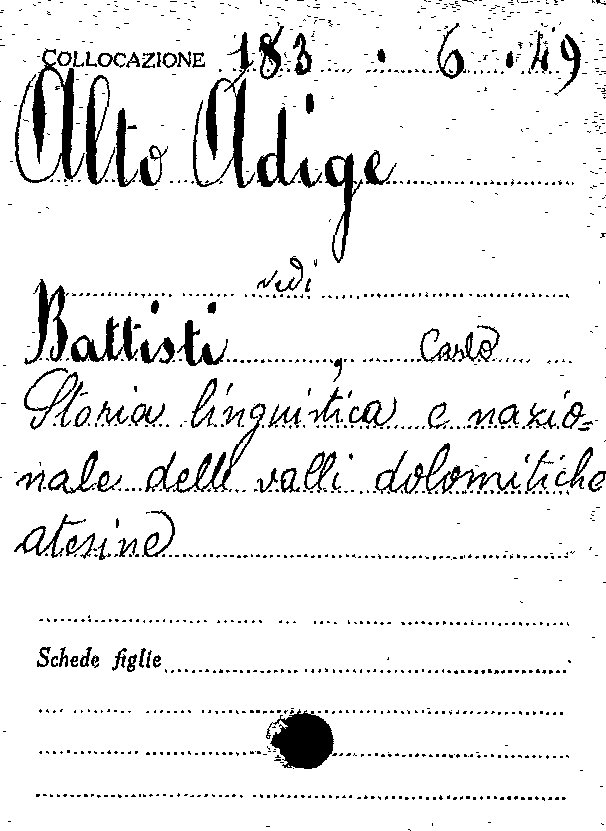 COLLOCAZIONE 183 . 6 . 49
Alto Adige
vedi
Battisti, Carlo
Storia linguistica e nazio=
nale delle valli dolomitiche
atesine
Schede figlie